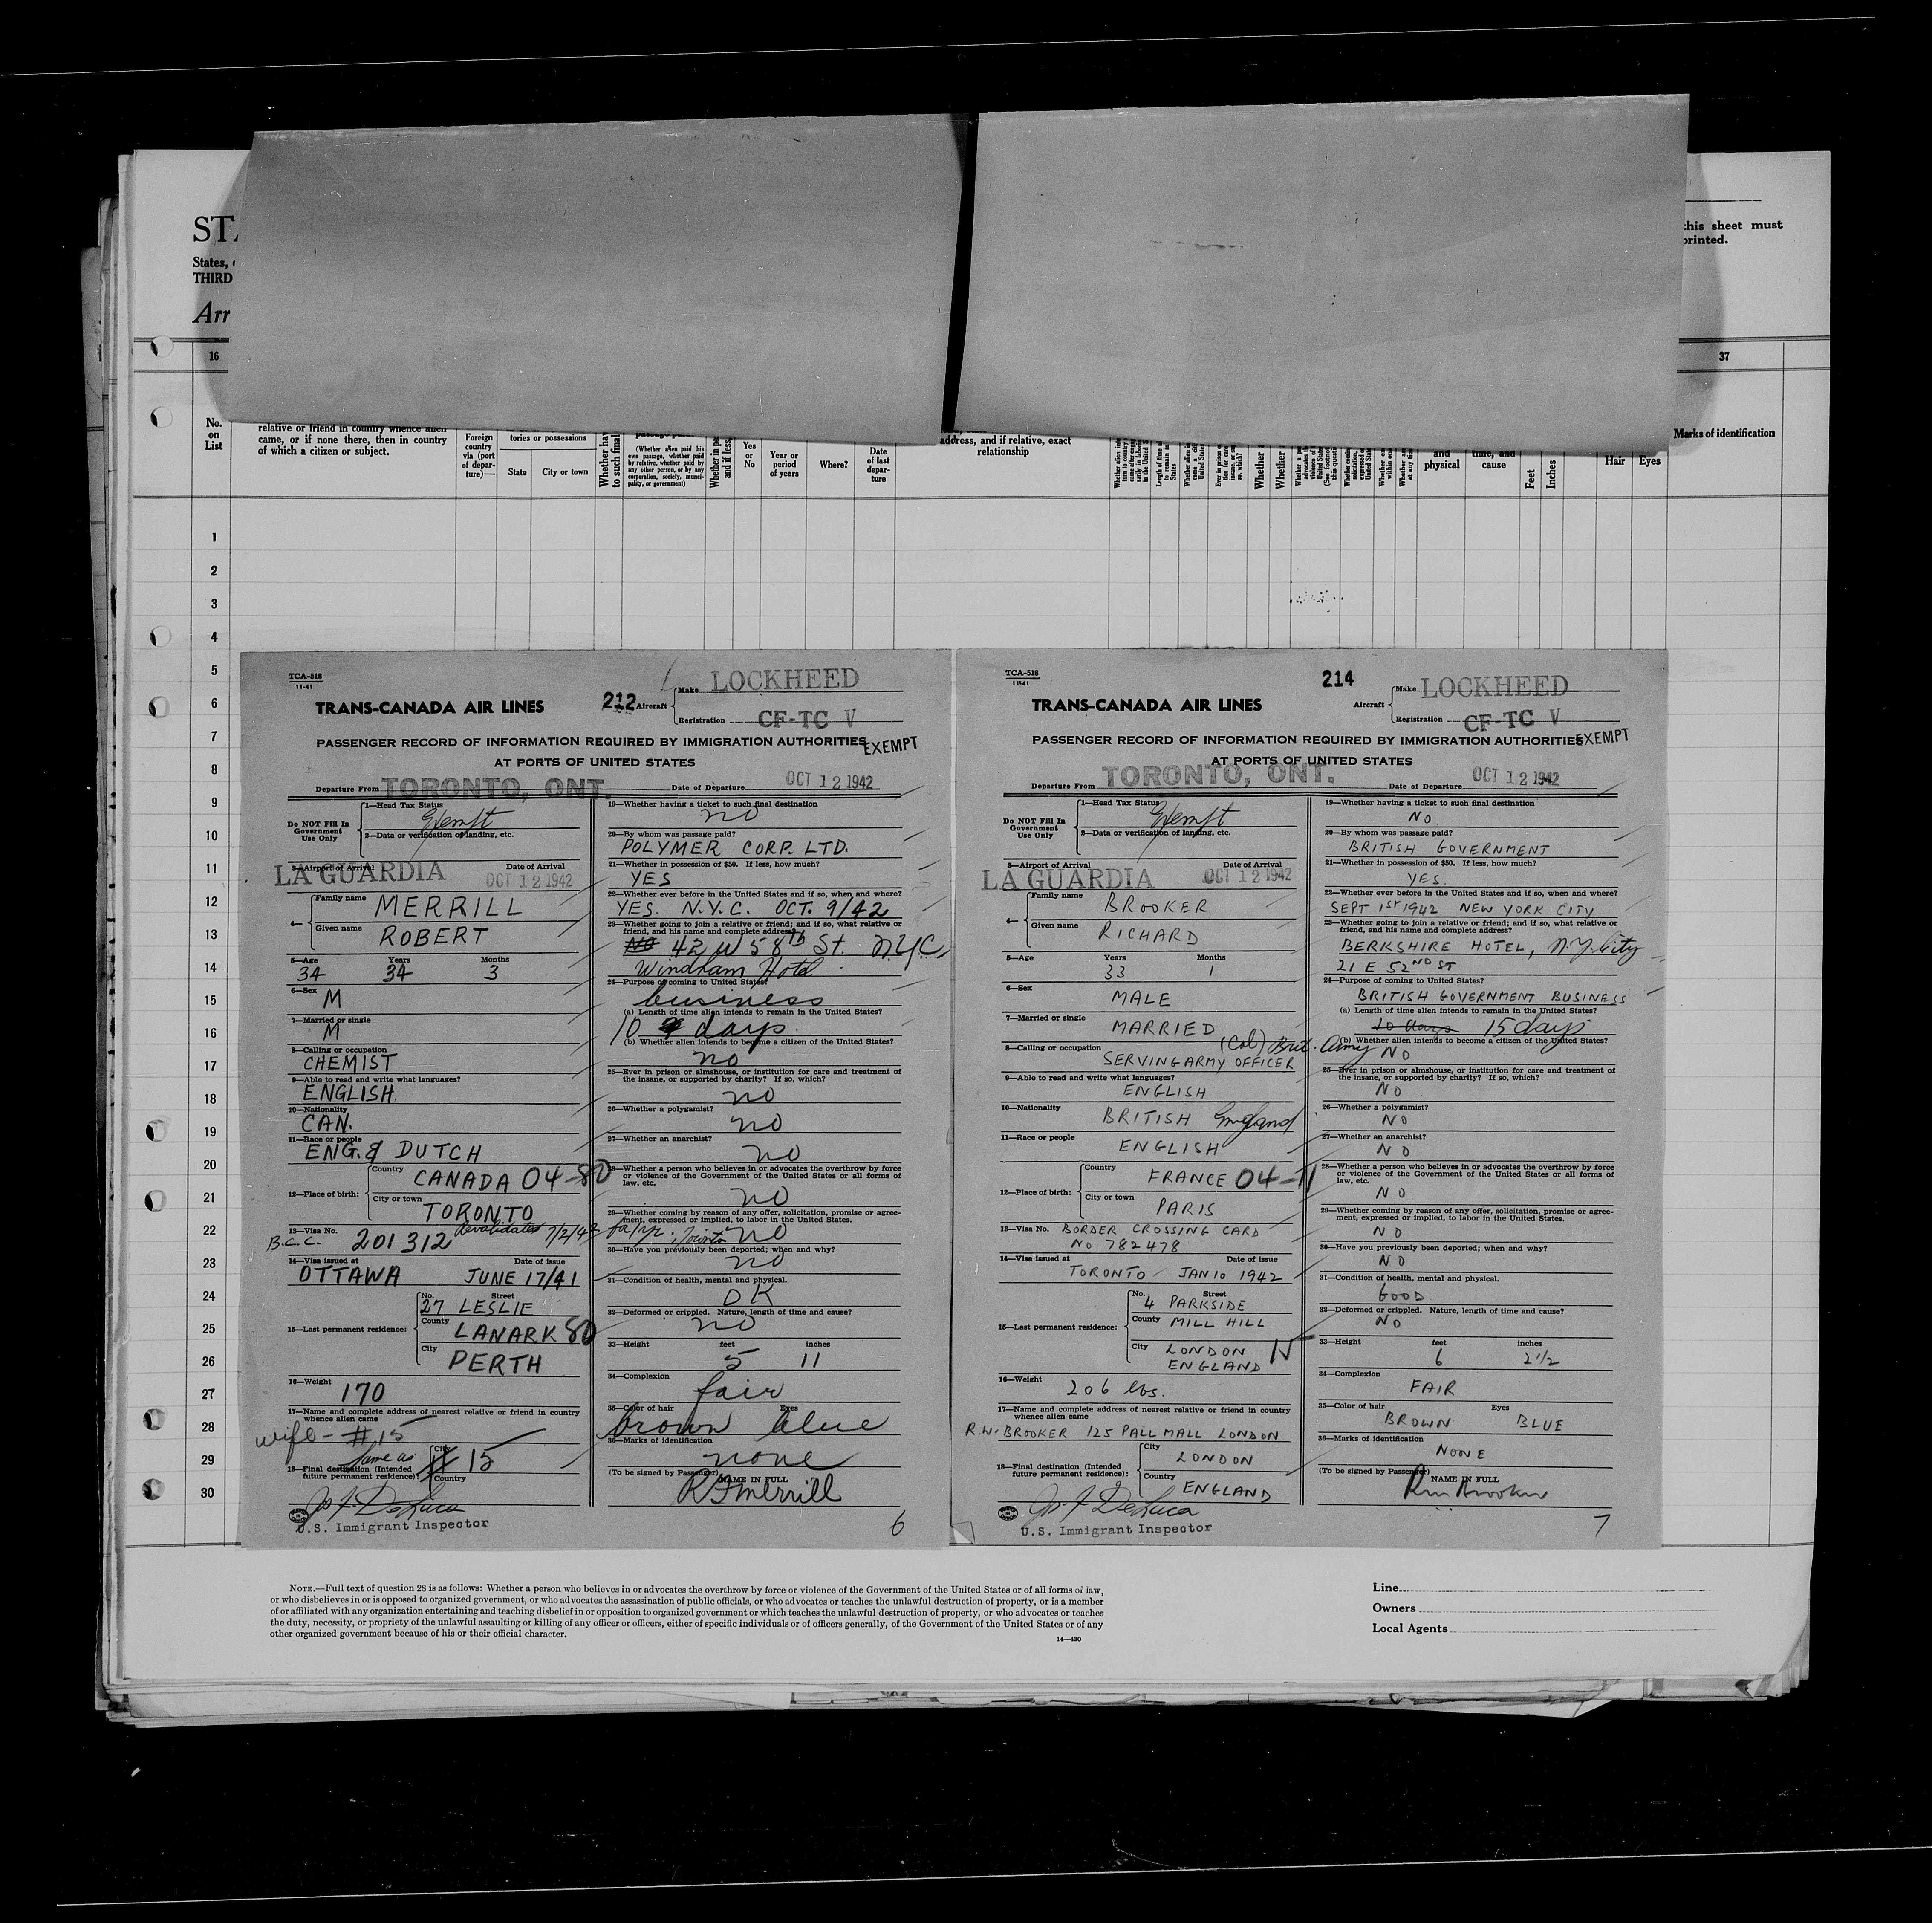 STA
States,
THIRD
Arr
this sheet must
printed.
16
37
No.
on
List
relative or friend in country whence alien
came, or if none there, then in country
of which a citizen or subject.
Foreign
country
via (port
of depar-
ture)—
tories or possessions
State
City or town
(Whether alien paid his
own passage, whether paid
by relative, whether paid by
any other person, or by any
corporation, society, munici-
pality, or government)
Yes
or
No
Year or
period
of years
Where?
Date
of last
depar-
ture
address, and if relative, exact
relationship
and
physical
time, and
cause
Feet
Inches
Hair
Eyes
Marks of identification
1
2
3
4
5
6
7
8
9
10
11
12
13
14
15
16
17
18
19
20
21
22
23
24
25
26
27
28
29
30
TCA-518
11-41
TRANS-CANADA AIR LINES
212
Aircraft
Make LOCKHEED
Registration CF-TC V
PASSENGER RECORD OF INFORMATION REQUIRED BY IMMIGRATION AUTHORITIES
EXEMPT
AT PORTS OF UNITED STATES
Departure From TORONTO, ONT.
Date of Departure OCT 12 1942
Do NOT Fill In
Government
Use Only
1—Head Tax Status
Exempt
2—Data or verification of landing, etc.
3—Airport of Arrival
Date of Arrival
LA GUARDIA OCT 12 1942
4—
Family name MERRILL
Given name ROBERT
5—Age Years Months
34 34 3
6—Sex
M
7—Married or single
M
8—Calling or occupation
CHEMIST
9—Able to read and write what languages?
ENGLISH.
10—Nationality
CAN.
11—Race or people
ENG. & DUTCH
12—Place of birth:
Country
CANADA 04-80
City or town
TORONTO
13—Visa No.
B.C.C. 201312 Revalidated 7/2/42
14—Visa issued at Date of issue
OTTAWA JUNE 17/41
15—Last permanent residence:
No. Street
27 LESLIE
County
LANARK 80
City
PERTH
16—Weight
170
17—Name and complete address of nearest relative or friend in country
whence alien came
wife - #15
18—Final destination (Intended
future permanent residence):
same as
City
# 15
Country
Jos. F. DeLuca
U.S. Immigrant Inspector
19—Whether having a ticket to such final destination
no
20—By whom was passage paid?
POLYMER CORP. LTD.
21—Whether in possession of $50. If less, how much?
YES
22—Whether ever before in the United States and if so, when and where?
YES. N.Y.C. OCT. 9/42
23—Whether going to join a relative or friend; and if so, what relative or
friend, and his name and complete address?
NO 42 W 58th St. N.Y.C.
Windham Hotel
24—Purpose of coming to United States?
business
(a) Length of time alien intends to remain in the United States?
10 days
(b) Whether alien intends to become a citizen of the United States?
no
25—Ever in prison or almshouse, or institution for care and treatment of
the insane, or supported by charity? If so, which?
no
26—Whether a polygamist?
no
27—Whether an anarchist?
no
28—Whether a person who believes in or advocates the overthrow by force
or violence of the Government of the United States or all forms of
law, etc.
no
29—Whether coming by reason of any offer, solicitation, promise or agree-
ment, expressed or implied, to labor in the United States.
no
30—Have you previously been deported; when and why?
no
31—Condition of health, mental and physical.
OK
32—Deformed or crippled. Nature, length of time and cause?
no
33—Height feet inches
5 11
34—Complexion
fair
35—Color of hair Eyes
brown blue
36—Marks of identification
none
(To be signed by Passenger) NAME IN FULL
R F Merrill
6
TCA-518
11-41
TRANS-CANADA AIR LINES
214
Aircraft
Make LOCKHEED
Registration CF-TC V
PASSENGER RECORD OF INFORMATION REQUIRED BY IMMIGRATION AUTHORITIES
EXEMPT
AT PORTS OF UNITED STATES
Departure From TORONTO, ONT.
Date of Departure OCT 12 1942
Do NOT Fill In
Government
Use Only
1—Head Tax Status
Exempt
2—Data or verification of landing, etc.
3—Airport of Arrival
Date of Arrival
LA GUARDIA OCT 12 1942
4—
Family name BROOKER
Given name RICHARD
5—Age Years Months
33 1
6—Sex
MALE
7—Married or single
MARRIED
8—Calling or occupation (Col) Brit. Army
SERVING ARMY OFFICER
9—Able to read and write what languages?
ENGLISH
10—Nationality
BRITISH England
11—Race or people
ENGLISH
12—Place of birth:
Country
FRANCE 04-11
City or town
PARIS
13—Visa No. BORDER CROSSING CARD
No 782478
14—Visa issued at Date of issue
TORONTO JAN 10 1942
15—Last permanent residence:
No. Street
4 PARKSIDE
County MILL HILL
City LONDON
ENGLAND
15
16—Weight
206 lbs.
17—Name and complete address of nearest relative or friend in country
whence alien came
R.W. BROOKER 125 PALL MALL LONDON
18—Final destination (Intended
future permanent residence):
City
LONDON
Country
ENGLAND
Jos. F. DeLuca
U.S. Immigrant Inspector
19—Whether having a ticket to such final destination
NO
20—By whom was passage paid?
BRITISH GOVERNMENT
21—Whether in possession of $50. If less, how much?
YES.
22—Whether ever before in the United States and if so, when and where?
SEPT 1ST 1942 NEW YORK CITY
23—Whether going to join a relative or friend; and if so, what relative or
friend, and his name and complete address?
BERKSHIRE HOTEL, N.Y. City
21 E 52ND ST
24—Purpose of coming to United States?
BRITISH GOVERNMENT BUSINESS
(a) Length of time alien intends to remain in the United States?
10 days 15 days
(b) Whether alien intends to become a citizen of the United States?
NO
25—Ever in prison or almshouse, or institution for care and treatment of
the insane, or supported by charity? If so, which?
NO
26—Whether a polygamist?
NO
27—Whether an anarchist?
NO
28—Whether a person who believes in or advocates the overthrow by force
or violence of the Government of the United States or all forms of
law, etc.
NO
29—Whether coming by reason of any offer, solicitation, promise or agree-
ment, expressed or implied, to labor in the United States.
NO
30—Have you previously been deported; when and why?
NO
31—Condition of health, mental and physical.
GOOD
32—Deformed or crippled. Nature, length of time and cause?
NO
33—Height feet inches
6 2 1/2
34—Complexion
FAIR
35—Color of hair Eyes
BROWN BLUE
36—Marks of identification
NONE
(To be signed by Passenger) NAME IN FULL
7
NOTE.—Full text of question 28 is as follows: Whether a person who believes in or advocates the overthrow by force or violence of the Government of the United States or of all forms of law,
or who disbelieves in or is opposed to organized government, or who advocates the assassination of public officials, or who advocates or teaches the unlawful destruction of property, or is a member
of or affiliated with any organization entertaining and teaching disbelief in or opposition to organized government or which teaches the unlawful destruction of property, or who advocates or teaches
the duty, necessity, or propriety of the unlawful assaulting or killing of any officer or officers, either of specific individuals or of officers generally, of the Government of the United States or of any
other organized government because of his or their official character.
14—430
Line
Owners
Local Agents